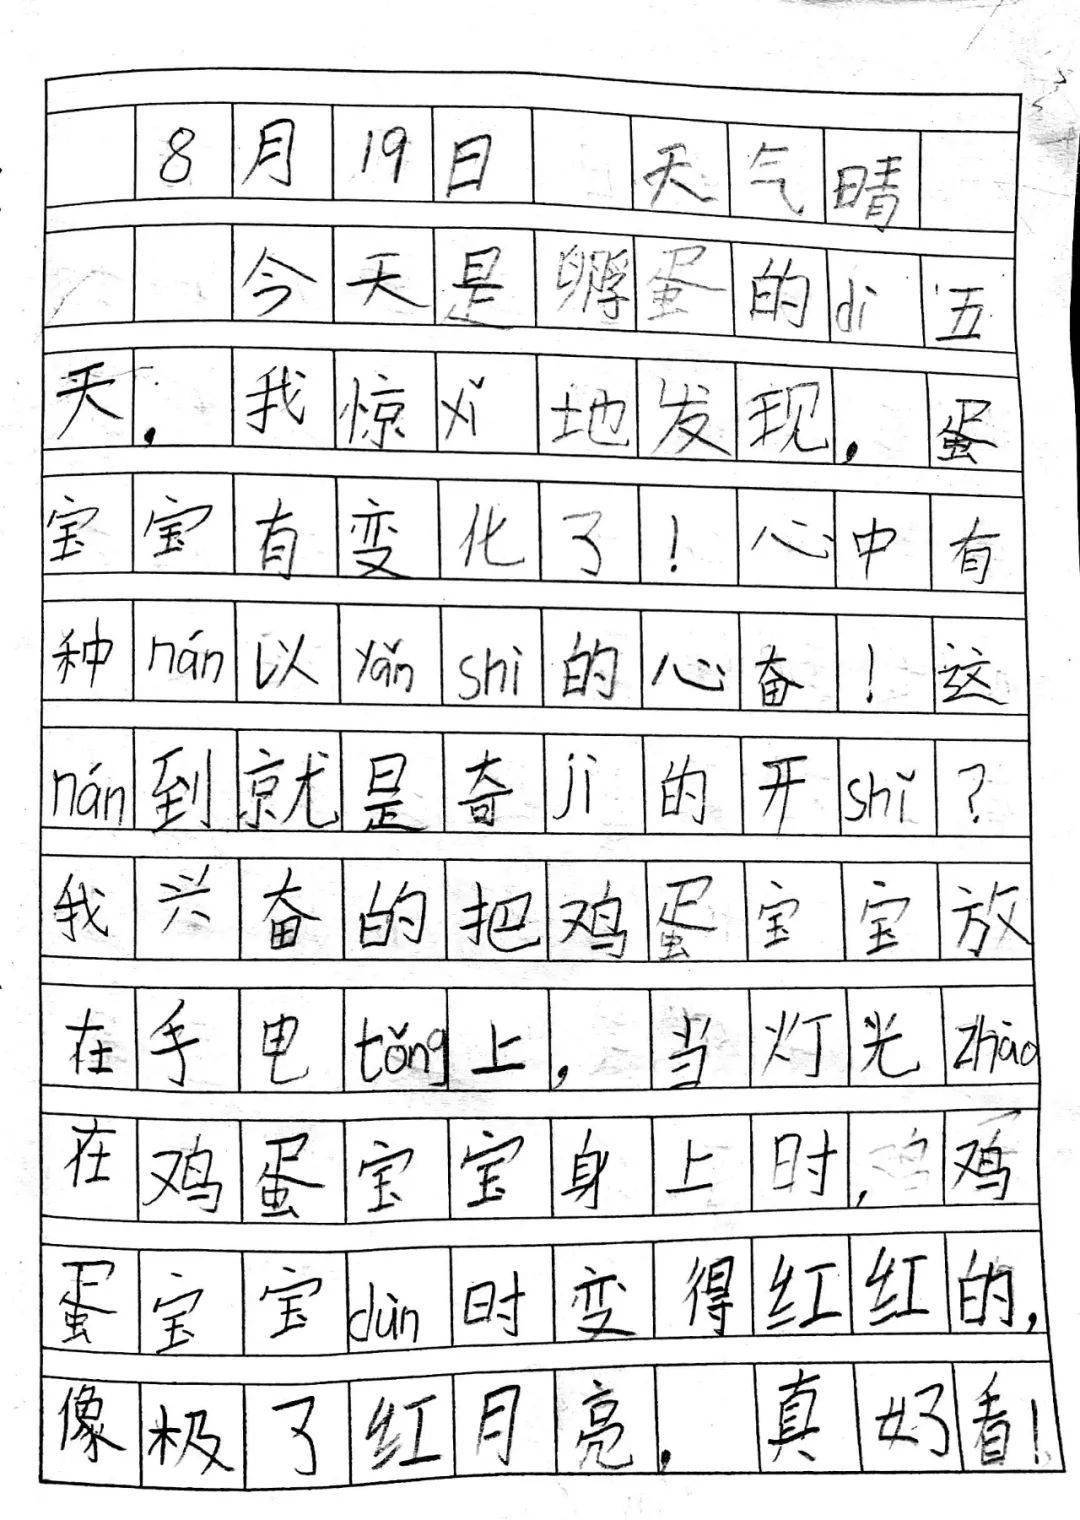 8月19日 天气晴
今天是孵蛋的di五
天，我惊xǐ地发现，蛋
宝宝有变化了！心中有
种nán以yǎn shì的心奋！这
nán到就是奇jì的开shǐ？
我兴奋的把鸡蛋宝宝放
在手电tǒng上，当灯光zhào
在鸡蛋宝宝身上时，鸡
蛋宝宝dùn时变得红红的，
像极了红月亮，真好看！